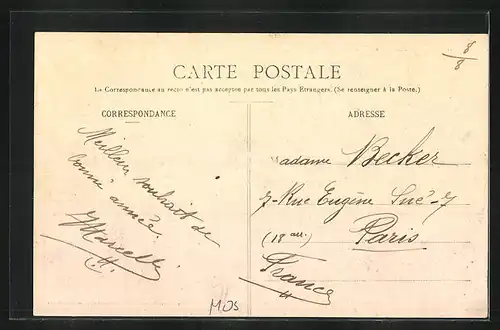 8/8
CARTE POSTALE
La Correspondance au recto n'est pas acceptée par tous les Pays Étrangers. (Se renseigner à la Poste.)
CORRESPONDANCE
Meilleur souhait de
bonne année.
Marcelle
ADRESSE
adame Becker
7-Rue Eugène Sue-7
(18 arr.) Paris
France